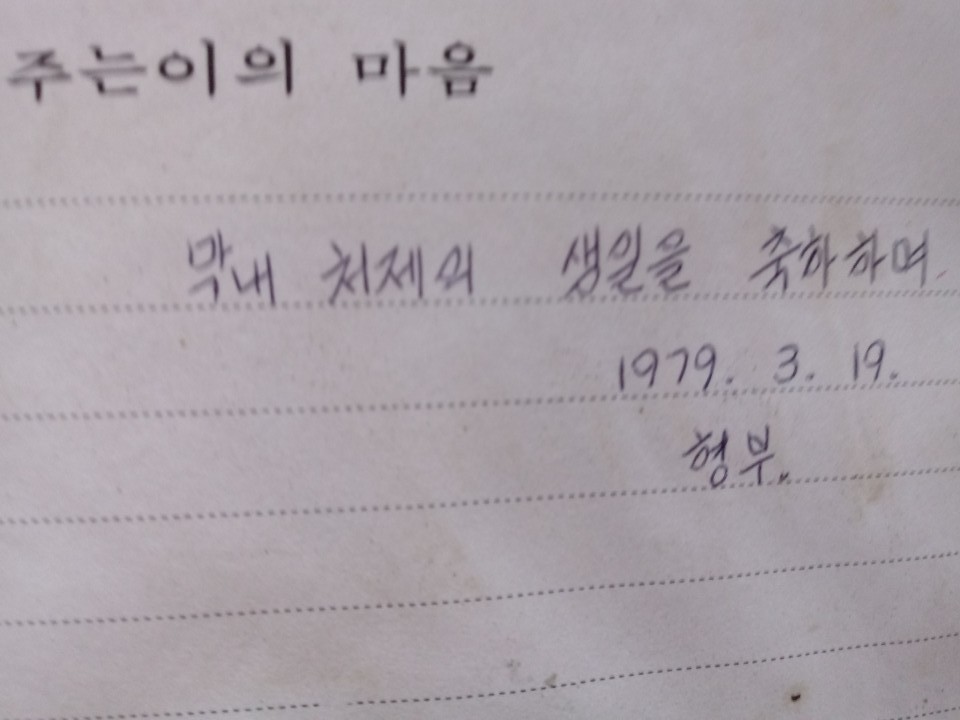 주는이의 마음
막내 처제의 생일을 축하하며.
1979. 3. 19.
형부.